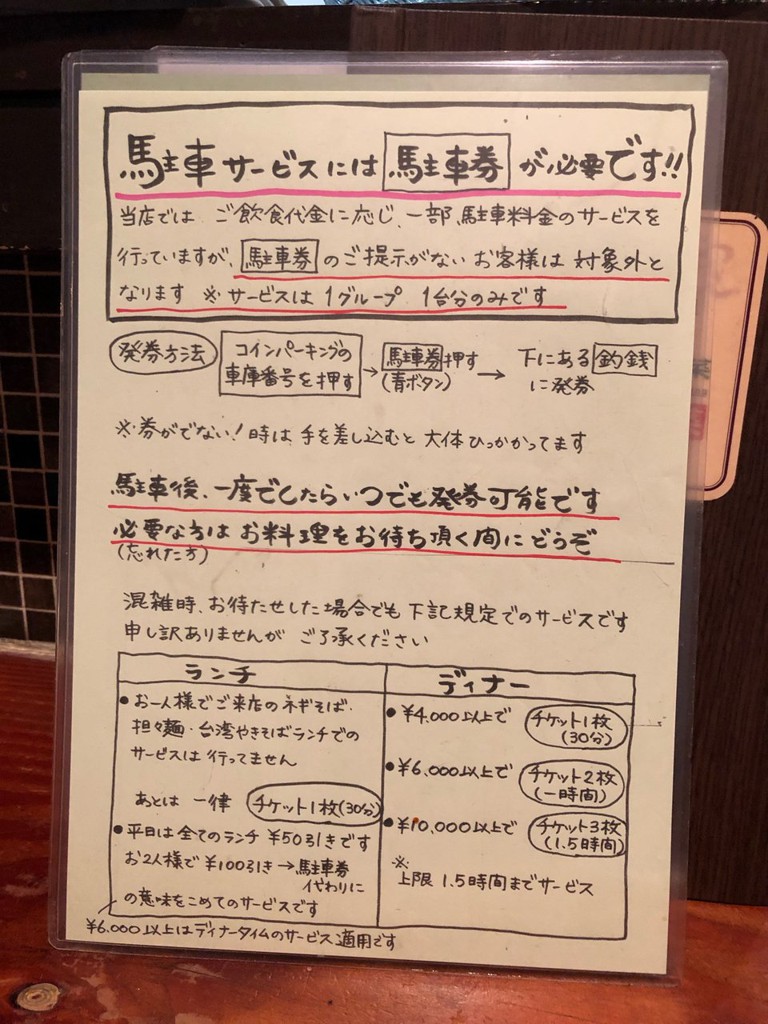 駐車サービスには 駐車券 が必要です!!
当店では ご飲食代金に応じ、一部、駐車料金のサービスを
行っていますが、駐車券 のご提示がない お客様は 対象外と
なります ※サービスは 1グループ 1台分のみです
発券方法 コインパーキングの車庫番号を押す → 駐車券押す(青ボタン) → 下にある釣銭に発券
※券がでない!時は 手を差し込むと 大体ひっかかってます
駐車後、一度でしたらいつでも発券可能です
必要な方は お料理をお待ち頂く間に どうぞ
(忘れた方)
混雑時、お待たせした場合でも 下記規定でのサービスです
申し訳ありませんが ご了承ください
ランチ
●お一人様でご来店のネギそば・
担々麺・台湾やきそばランチでの
サービスは 行ってません
あとは 一律 チケット1枚(30分)
●平日は全てのランチ ¥50引きです
お2人様で ¥100引き→駐車券
代わりに
の意味をこめてのサービスです
ディナー
●¥4.000以上で チケット1枚(30分)
●¥6.000以上で チケット2枚(一時間)
●¥10.000以上で チケット3枚(1.5時間)
※
上限 1.5時間までサービス
¥6.000以上はディナータイムのサービス適用です